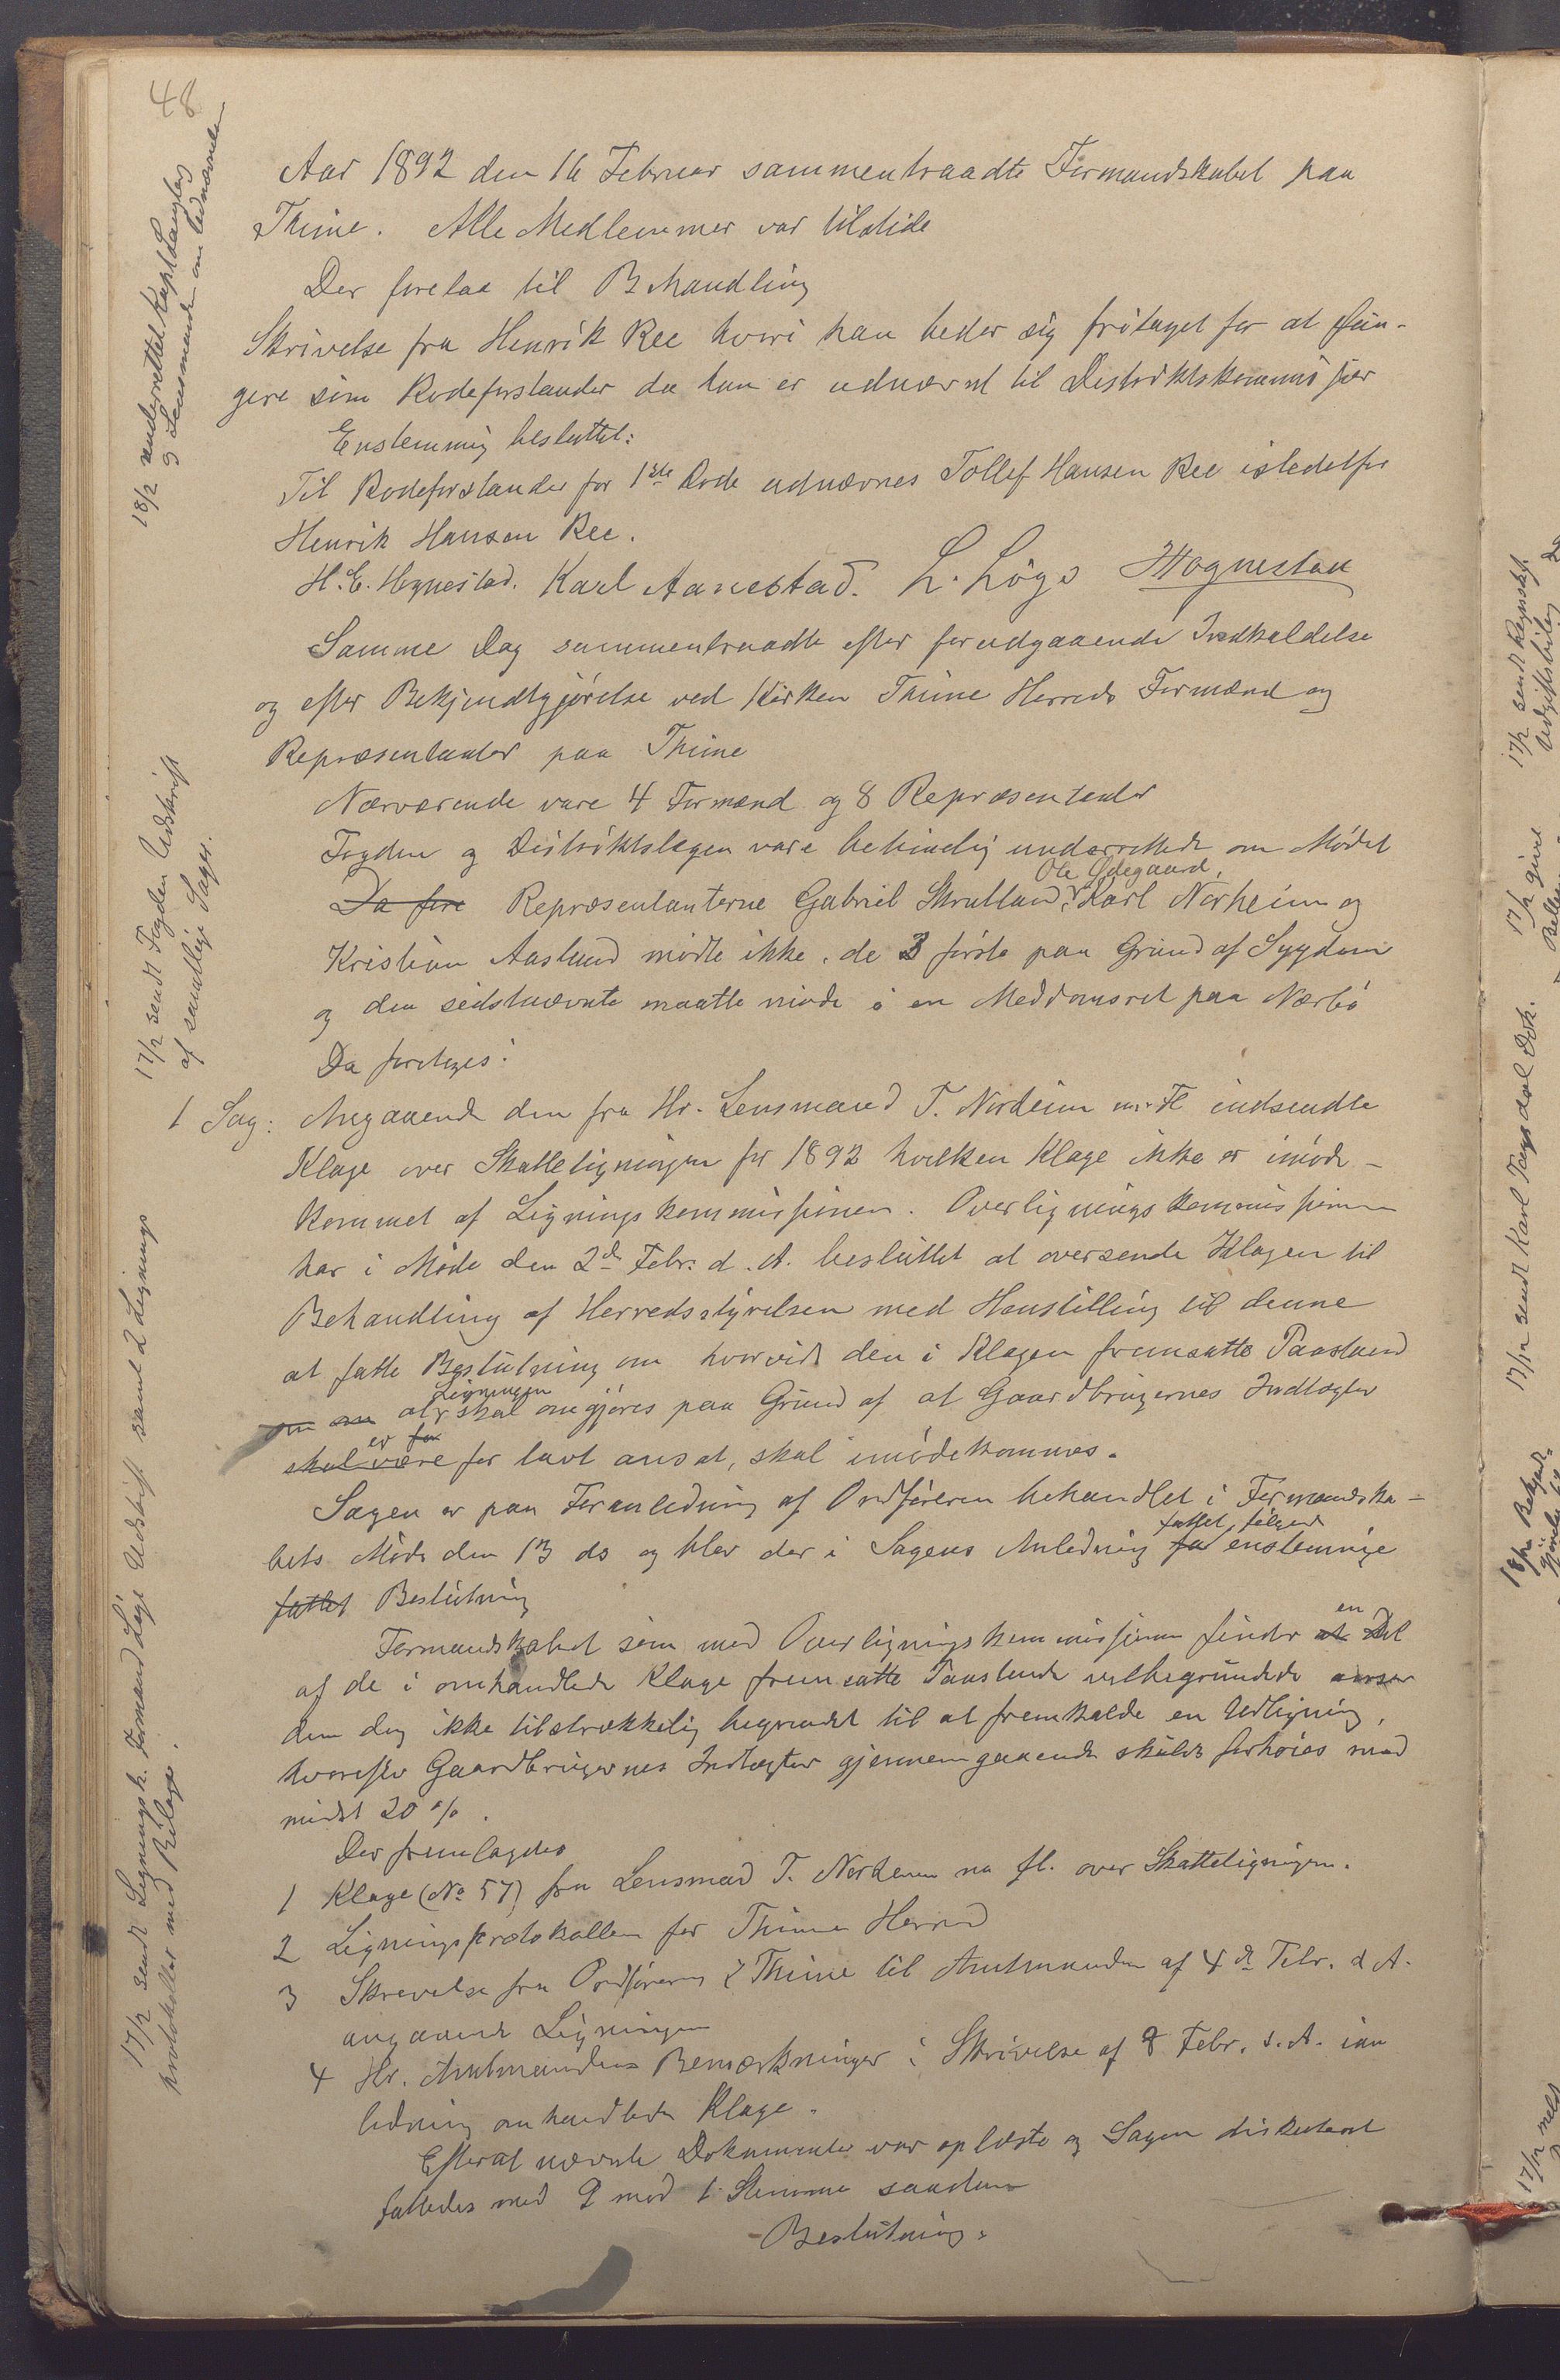 48
Aar 1892 den 16 Februar sammentraadte Formandskabet paa
Thime. Alle Medlemmer var tilstede
Der forelaa til Behandling
Skrivelse fra Henrik Ree hvori han beder sig fritaget for at fun-
gere som Rodeforstander da han er udnævnt til Distriktskommissær
Enstemmig besluttet:
Til Rodeforstander for 1ste Rode udnævnes Tollef Hansen Ree istedetfor
Henrik Hansen Ree.
H. E. Hognestad. Karl Aanestad. L. Løge Hognestad
Samme Dag sammentraadte efter forudgaaende Indkaldelse
og efter Bekjendtgjørelse ved Kirken Thime Herreds Formænd og
Repræsentanter paa Thime
Nærværende vare 4 Formænd og 8 Repræsentanter
Fogden og Distriktslægen vare betimelig underrettede om Mødet
Da fore Repræsentanterne Gabriel Skrudland, Ole Ødegaard, Karl Norheim og
Kristian Aasland mødte ikke, de 3 første paa Grund af Sygdom
og den sidstnævnte maatte møde i en Meddomsret paa Nærbø
Da foretoges:
1 Sag: Angaaende den fra Hr. Lensmand T. Norheim m. fl indsendte
Klage over Skatteligningen for 1892 hvilken Klage ikke er imøde-
kommet af Ligningskommissionen. Overligningskommissionen
har i Møde den 2de Febr. d. A. besluttet at oversende Klagen til
Behandling af Herredsstyrelsen med Henstilling til denne
at fatte Beslutning om hvorvidt den i Klagen fremsatte Paastand
om at Ligningen skal omgjøres paa Grund af at Gaardbrugernes Indtægter
skal være er for lavt ansat, skal imødekommes.
Sagen er paa Foranledning af Ordføreren behandlet i Formandska-
bets Møde den 13 ds og blev der i Sagens Anledning fattet følgende enstemmige
fattet Beslutning
Formandskabet som med Overligningskommissionen finder en Del
af de i omhandlede Klage fremsatte Paastande velbegrundede anser
dem dog ikke tilstrækkelig begrundet til at fremkalde en Udligning,
hvorefter Gaardbrugernes Indtægter gjennemgaaende skulde forhøies med
mindst 20 %.
Der fremlagdes
1 Klage (No 57) fra Lensmad T. Norheim m fl. over Skatteligningen.
2 Ligningsprotokollen for Thime Herred
3 Skrevelse fra Ordføreren i Thime til Amtmanden af 4de Febr. d A.
angaaende Ligningen
4 Hr. Amtmandens Bemærkninger i Skrivelse af 8 Febr. d. A. ian
ledning omhandlede Klage.
Efterat nævnte Dokumenter var oplæste og Sagen diskuteret
fattedes med 9 mod 1 Stemme saadan
Beslutning:
18/2 underrettet
og Lensmanden om Udnævnelsen
17/2 sendt Fogden Udskrift
af samtlige Sager.
17/2 sendt Ligningsk. Formand Løge Udskrift samt 2 Lignings
protokoller med Bilage.
17/2 sendt Regnskabsf.
Udgiftsbilag
17/2 givet
17/2 sendt Karl Taxdal Dok.
18/2 Bekjendt-
17/2 meld